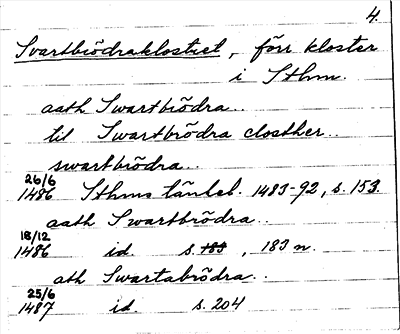 4.
Svartbrödraklostret, förr kloster
i Sthm.
aath Swartbrödra..
til Swartbrödra closther..
swartbrödra..
26/6
1486 Sthms tänkeb. 1483-92, s. 153.
aath Swartbrödra..
18/12
1486 id. s. 183, 183 n.
ath Swartabrödra..
25/6
1487 id. s. 204